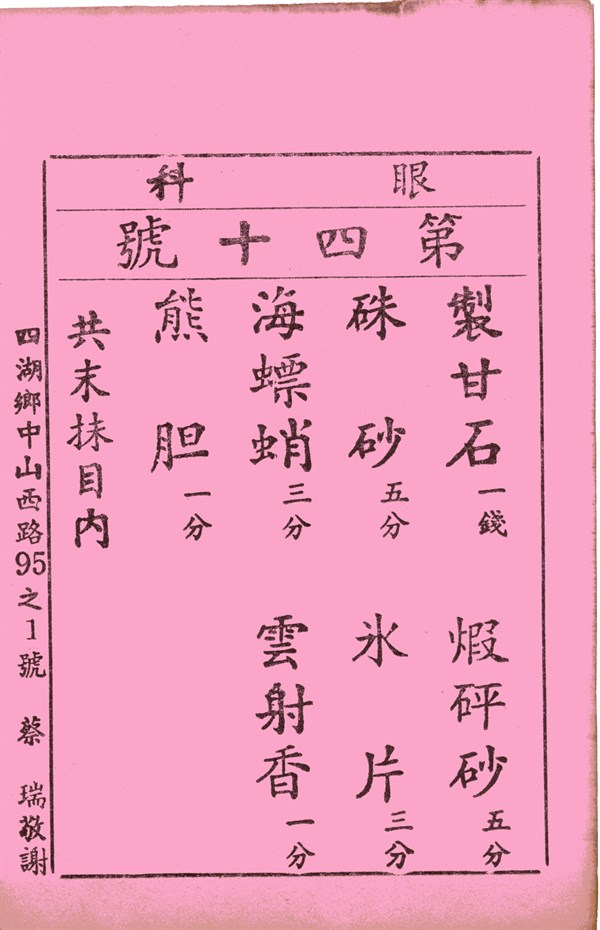 眼科
第四十號
製甘石一錢 煆砰砂五分
硃砂五分 氷片三分
海螵蛸三分 雲射香一分
熊胆一分
共末抹目內
四湖鄉中山西路95之1號 蔡瑞敬謝